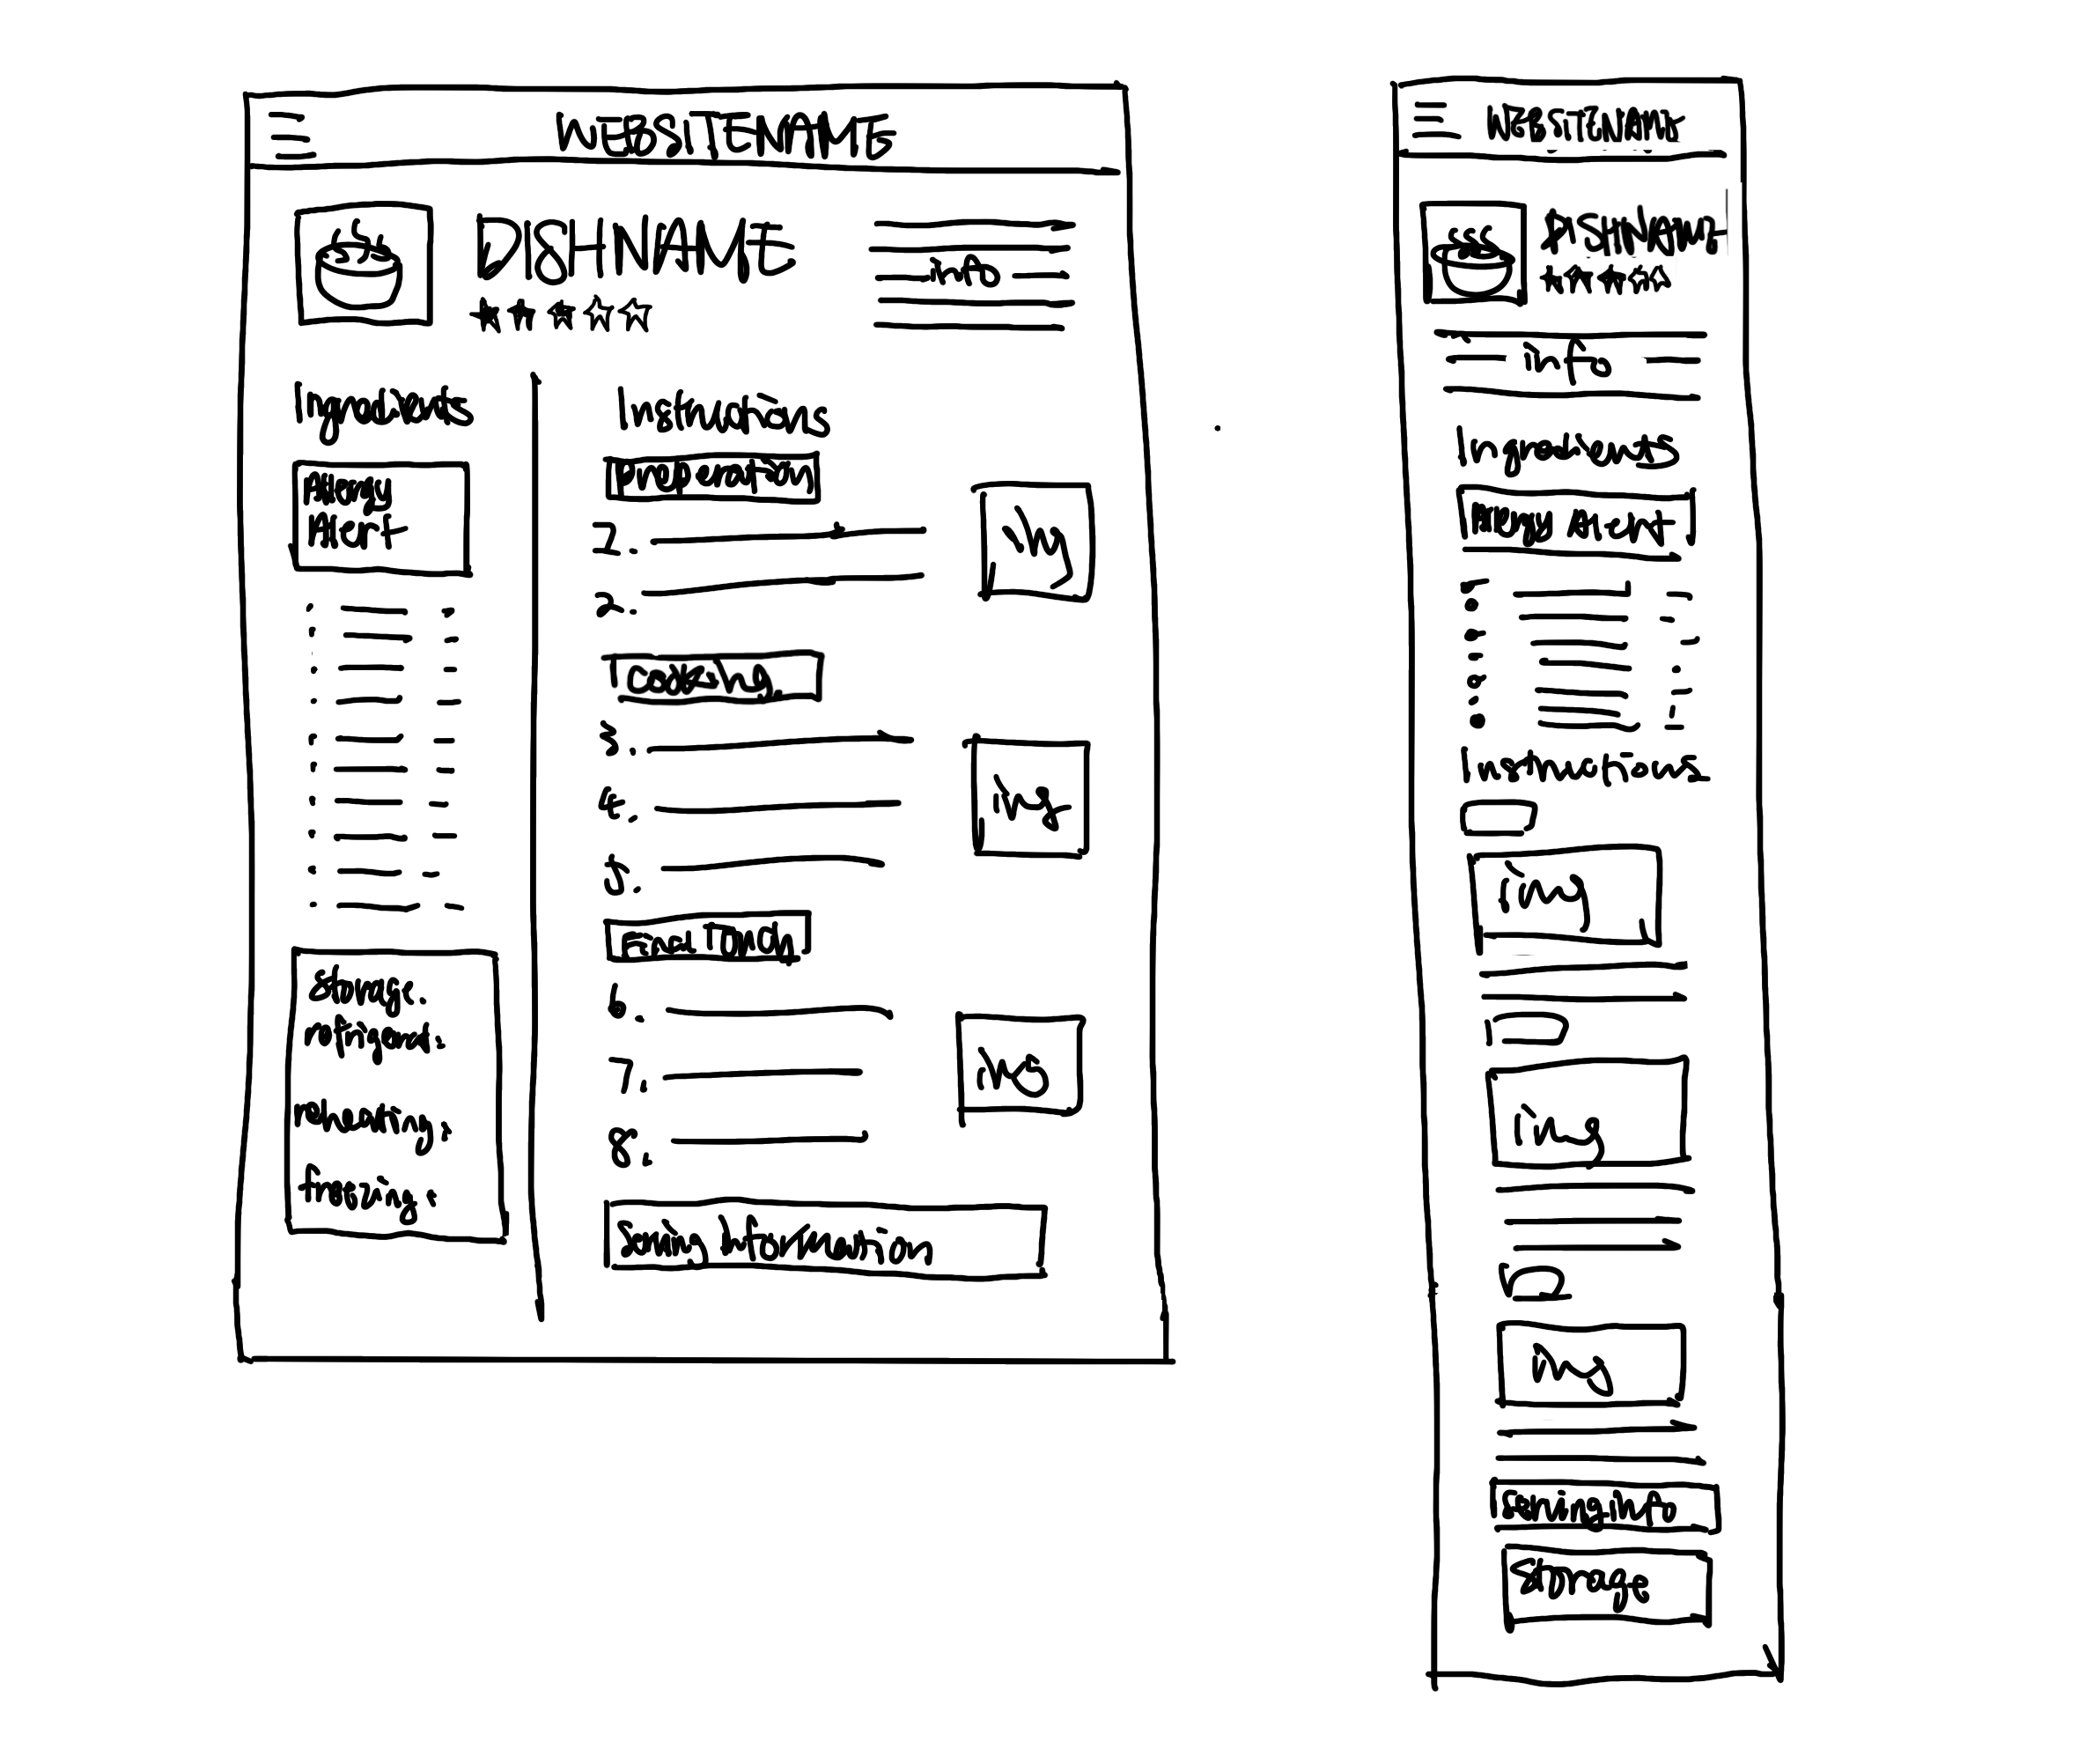 WEBSITENAME
DISHNAME
info
Ingredients
Allergy
Alert
storage.
refrigerat.
reheating:
freezing:
Instructions
preperation
1.
2.
cooking
3.
4.
5.
Final Touch
6.
7.
8.
Serving Information
img
img
img
WEBSITENAME
DISHNAME
info
Ingredients
Allergy Alert
Instructions
img
img
img
Serving info
Storage